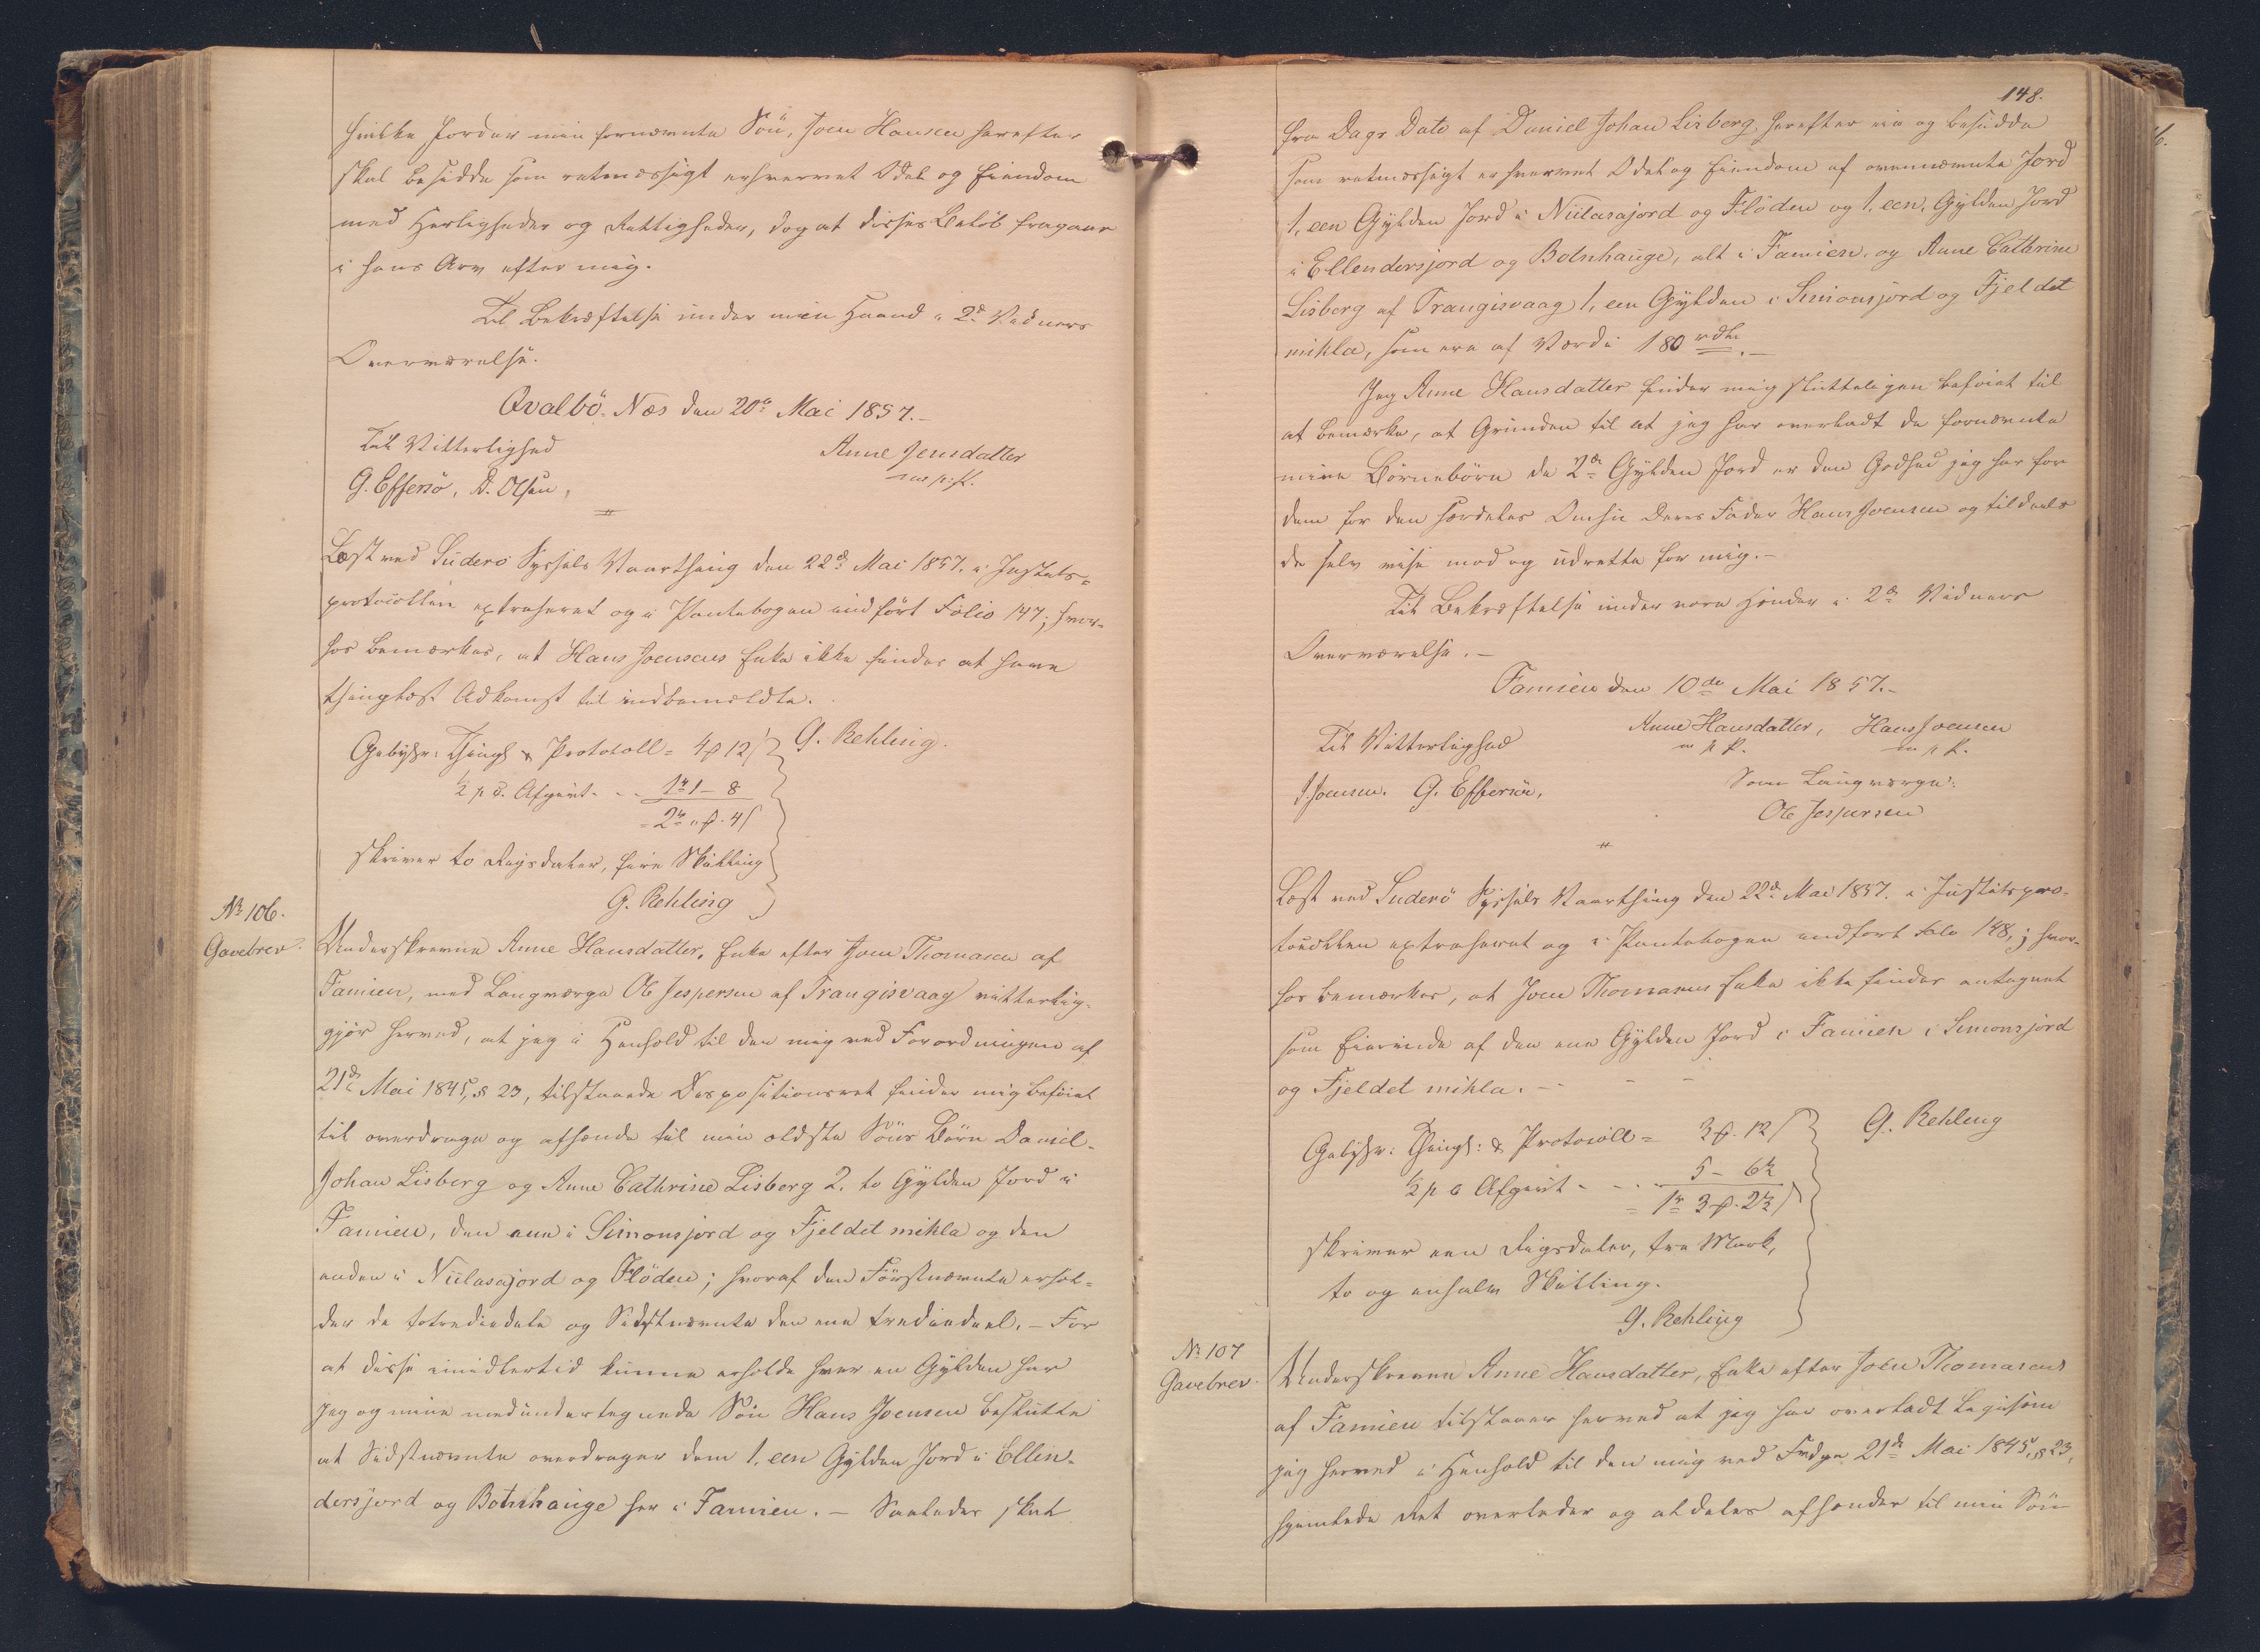 hvilke Jorder min fornævnte Sön, Joen Hansen herefter
skal besidde som retmæssigt erhvervet Odel og Eiendom
med Herligheder og Rettigheder, dog at disses Beløb fragaar
i hans Arv efter mig.
Til Bekræftelse under min Haand i 2de Vidners
Overværelse.
Qvalbö. Næs den 20de Mai 1857.-
Til Vitterlighed
Anne Jensdatter
m. p. P.
G. Effersö, D. Olsen,
Læst ved Suderö Syssels Vaarthing den 22de Mai 1857. i Justits-
protocollen extraheret og i Pantebogen indfört Folio 147; hvor-
hos bemærkes, at Hans Joensens Enke ikke findes at have
thinglæst Adkomst til indbemeldte.
Gebyhr: Thingl & Protocoll = 4 ß 12 s
G. Rehling.
½ p C. Afgivt - - 1 rd 1 - 8
= 2 rd " ß. 4 s
skriver to Rigsdaler, fire Skilling
G. Rehling
№ 106.
Gavebrev.
Underskrevne Anne Hansdatter, Enke efter Joen Thomasen af
Famien, med Laugværge Ole Jespersen af Trangisvaag vitterlig-
gjör herved, at jeg i Henhold til den mig ved Forordningen af
21de Mai 1845, § 23, tilstaaede Dispositionsret finder mig beföiet
til overdrage og afhænde til min ældste Söns Börn Daniel-
Johan Lisberg og Anne Cathrine Lisberg 2. to Gylden Jord i
Famien, den ene i Simonsjord og Fjeldet mikla og den
anden i Niilasajord og Flöden; hvoraf den Förstnævnte erhol-
der de totrediedele og Sidstnævnte den ene trediedeel. - For
at disse imidlertid kunne erholde hver en Gylden har
jeg og min medundertegnede Sön Hans Joensen besluttet
at Sidstnævnte overdrager dem 1. een Gylden Jord i Ellin-
dersjord og Botnhauge her i Famien. - Saaledes skal
148.
fra Dags Dato af Daniel Johan Lisberg herefter eie og besidde
som retmæssigt erhvervet Odel og Eiendom af ovennævnte Jord
1. een Gylden Jord i Niilasajord og Flöden og 1. een, Gylden Jord
i Ellendersjord og Botnhauge, alt i Famien, og Anne Cathrine
Lisberg af Trangisvaag 1, een Gylden i Simonsjord og Fjeldet
mikla, som ere af Værdi 180 rdlr.-
Jeg Anne Hansdatter finder mig skutteligen beföiet til
at bemærke, at Grunden til at jeg har overladt de fornævnte
mine Börnebörn de 2de Gylden Jord er den Godhed jeg har for
dem for den særdeles Omhu deres Fader Hans Joensen og tildeels
de selv vise mod og udrette for mig.-
Til Bekræftelse under vore Hænder i 2de Vidners
Overværelse.-
Famien den 10de Mai 1857.-
Til Vitterlighed
Anne Hansdatter, Hans Joensen
m p P. m p P.
J. Joensen. G. Effersöe,
Som Laugværge:
Ole Jespersen
Læst ved Suderö Syssels Vaarthing den 22de Mai 1857. i Justitspro-
tocollen extraheret og i Pantebogen indfort Folio 148; hvor-
hos bemærkes, at Joen Thomasens Enke ikke findes antegnet
som Eierinde af den ene Gylden Jord i Famien i Simonsjord
og Fjeldet mikla. - - -
Gebyhr: Thingl: & Protocoll = 3 ß. 12 s
G. Rehling
½ p C Afgivt - - - 5 - 6½
= 1 rd 3 ß. 2½ s
skriver een Rigsdaler, tre Mark,
to og enhalv Skilling.
G. Rehling
№ 107
Gavebrev.
Underskrevne Anne Hansdatter, Enke efter Joen Thomasens
af Famien tilstaaer herved at jeg har overladt ligesom
jeg herved i Henhold til den mig ved Frdgn 21de Mai 1845, § 23,
hjemlede Ret overlader og aldeles afhænder til min Sön